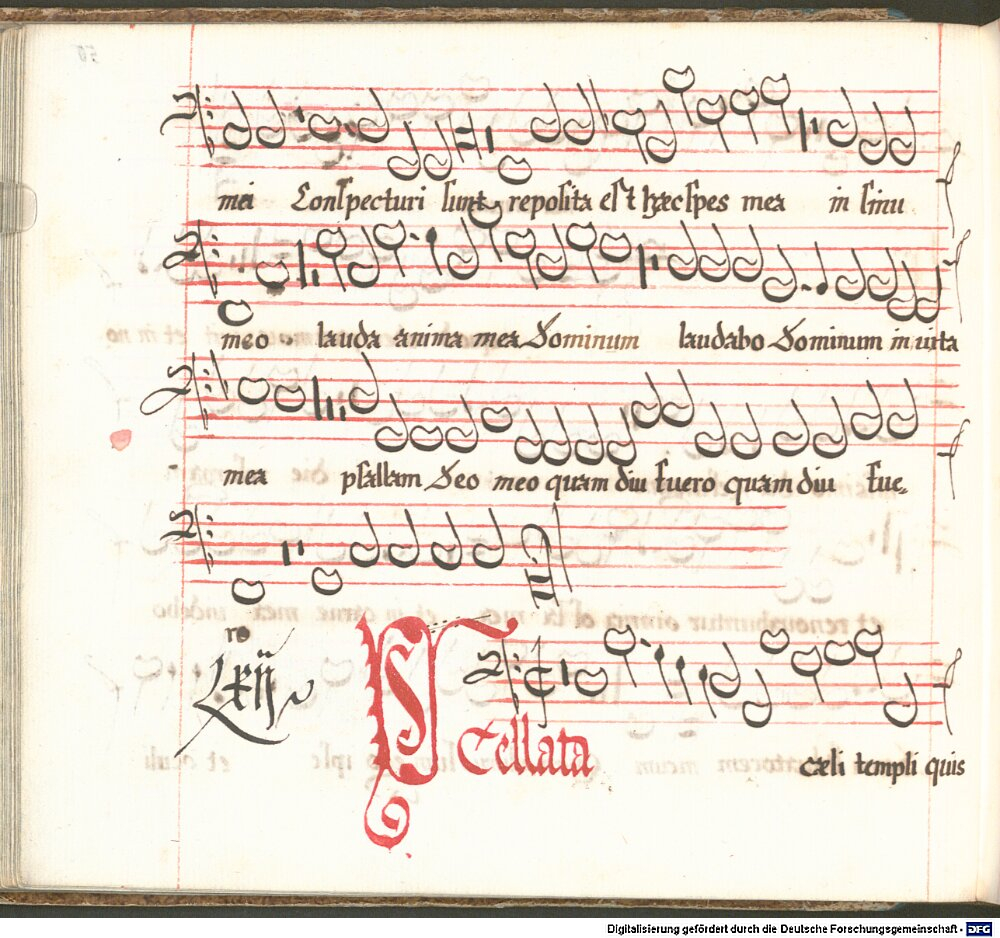 mei Conspecturi sunt reposita est hæc spes mea in sinu
meo . lauda anima mea Dominum laudabo Dominum in uita
mea psallam Deo meo quam diu fuero quam diu fue-
ro
Lxij
STellata cæli templi quis
Digitalisierung gefördert durch die Deutsche Forschungsgemeinschaft - DFG